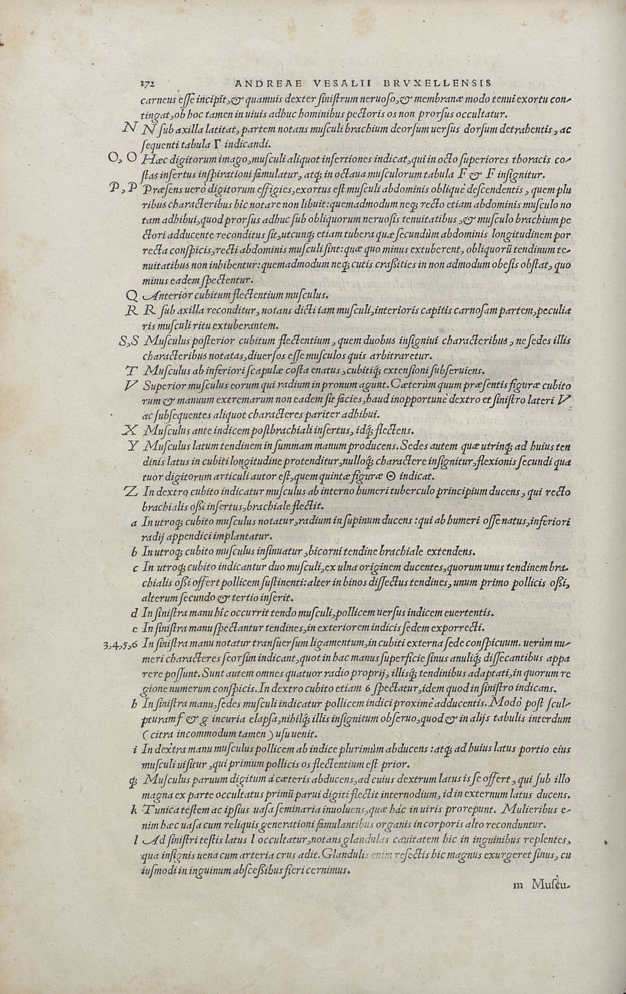 172 ANDREAE VESALII BRVXELLENSIS
carneus esse incipit, & quamuis dexter sinistrum neruoso, & membranæ modo tenui exortu con-
tingat, ob hoc tamen in uiuis adhuc hominibus pectoris os non prorsus occultatur.
N N sub axilla latitat, partem notans musculi brachium deorsum uersus dorsum detrahentis, ac
sequenti tabula Γ indicandi.
O, O Hæc digitorum imago, musculi aliquot insertiones indicat, qui in octo superiores thoracis co-
stas insertus inspirationi famulatur, atq; in octaua musculorum tabula F & F insignitur.
P, P Præsens uerò digitorum effigies, exortus est musculi abdominis obliquè descendentis, quem plu
ribus characteribus hic notare non libuit: quemadmodum neq; recto etiam abdominis musculo no
tam adhibui, quod prorsus adhuc sub obliquorum neruosis tenuitatibus, & musculo brachium pe
ctori adducente reconditus sit, utcunq; etiam tubera quæ secundùm abdominis longitudinem por
recta conspicis, recti abdominis musculi sint: quæ quo minus extuberent, obliquorū tendinum te-
nuitatibus non inhibentur: quemadmodum neq; cutis crassities in non admodum obesis obstat, quo
minus eadem spectentur.
Q Anterior cubitum flectentium musculus.
R R sub axilla reconditur, notans dicti iam musculi, interioris capitis carnosam partem, peculia
ris musculi ritu extuberantem.
S, S Musculus posterior cubitum flectentium, quem duobus insigniui characteribus, ne sedes illis
characteribus notatas, diuersos esse musculos quis arbitraretur.
T Musculus ab inferiori scapulæ costa enatus, cubitiq; extensioni subseruiens.
V Superior musculus eorum qui radium in pronum agunt. Cæterùm quum præsentis figuræ cubito
rum & manuum extremarum non eadem sit facies, haud inopportunè dextro et sinistro lateri V
ac subsequentes aliquot characteres pariter adhibui.
X Musculus ante indicem postbrachiali insertus, idq; flectens.
Y Musculus latum tendinem in summam manum producens. Sedes autem quæ utrinq; ad huius ten
dinis latus in cubiti longitudine protenditur, nulloq; charactere insignitur, flexionis secundi qua
tuor digitorum articuli autor est, quem quintæ figuræ Θ indicat.
Z In dextro cubito indicatur musculus ab interno humeri tuberculo principium ducens, qui recto
brachialis ossi insertus, brachiale flectit.
a In utroq; cubito musculus notatur, radium in supinum ducens: qui ab humeri osse natus, inferiori
radij appendici implantatur.
b In utroq; cubito musculus insinuatur, bicorni tendine brachiale extendens.
c In utroq; cubito indicantur duo musculi, ex ulna originem ducentes, quorum unus tendinem bra-
chialis ossi offert pollicem sustinenti: alter in binos dissectus tendines, unum primo pollicis ossi,
alterum secundo & tertio inserit.
d In sinistra manu hic occurrit tendo musculi, pollicem uersus indicem euertentis.
e In sinistra manu spectantur tendines, in exteriorem indicis sedem exporrecti.
3,4,5,6 In sinistra manu notatur transuersum ligamentum, in cubiti externa sede conspicuum. uerùm nu-
meri characteres seorsim indicant, quot in hac manus superficie sinus anuliq; dissecantibus appa
rere possunt. Sunt autem omnes quatuor radio proprij, illisq; tendinibus adaptati, in quorum re
gione numerum conspicis. In dextro cubito etiam 6 spectatur, idem quod in sinistro indicans.
h In sinistra manu, sedes musculi indicatur pollicem indici proximè adducentis. Modò post scul-
pturam f & g incuria elapsa, nihilq; illis insignitum obseruo, quod & in alijs tabulis interdum
(citra incommodum tamen) usu uenit.
i In dextra manu musculus pollicem ab indice plurimùm abducens: atq; ad huius latus portio eius
musculi uisitur, qui primum pollicis os flectentium est prior.
q; Musculus paruum digitum à cæteris abducens, ad cuius dextrum latus is se offert, qui sub illo
magna ex parte occultatus primū parui digiti flectit internodium, id in externum latus ducens.
k Tunica testem ac ipsius uasa seminaria inuoluens, quæ hàc in uiris prorepunt. Mulieribus e-
nim hæc uasa cum reliquis generationi famulantibus organis in corporis alto reconduntur.
l Ad sinistri testis latus l occultatur, notans glandulas cauitatem hic in inguinibus replentes,
qua insignis uena cum arteria crus adit. Glandulis enim resectis hic magnus exurgeret sinus, cu
iusmodi in inguinum abscessibus fieri cernimus.
m Muscu-